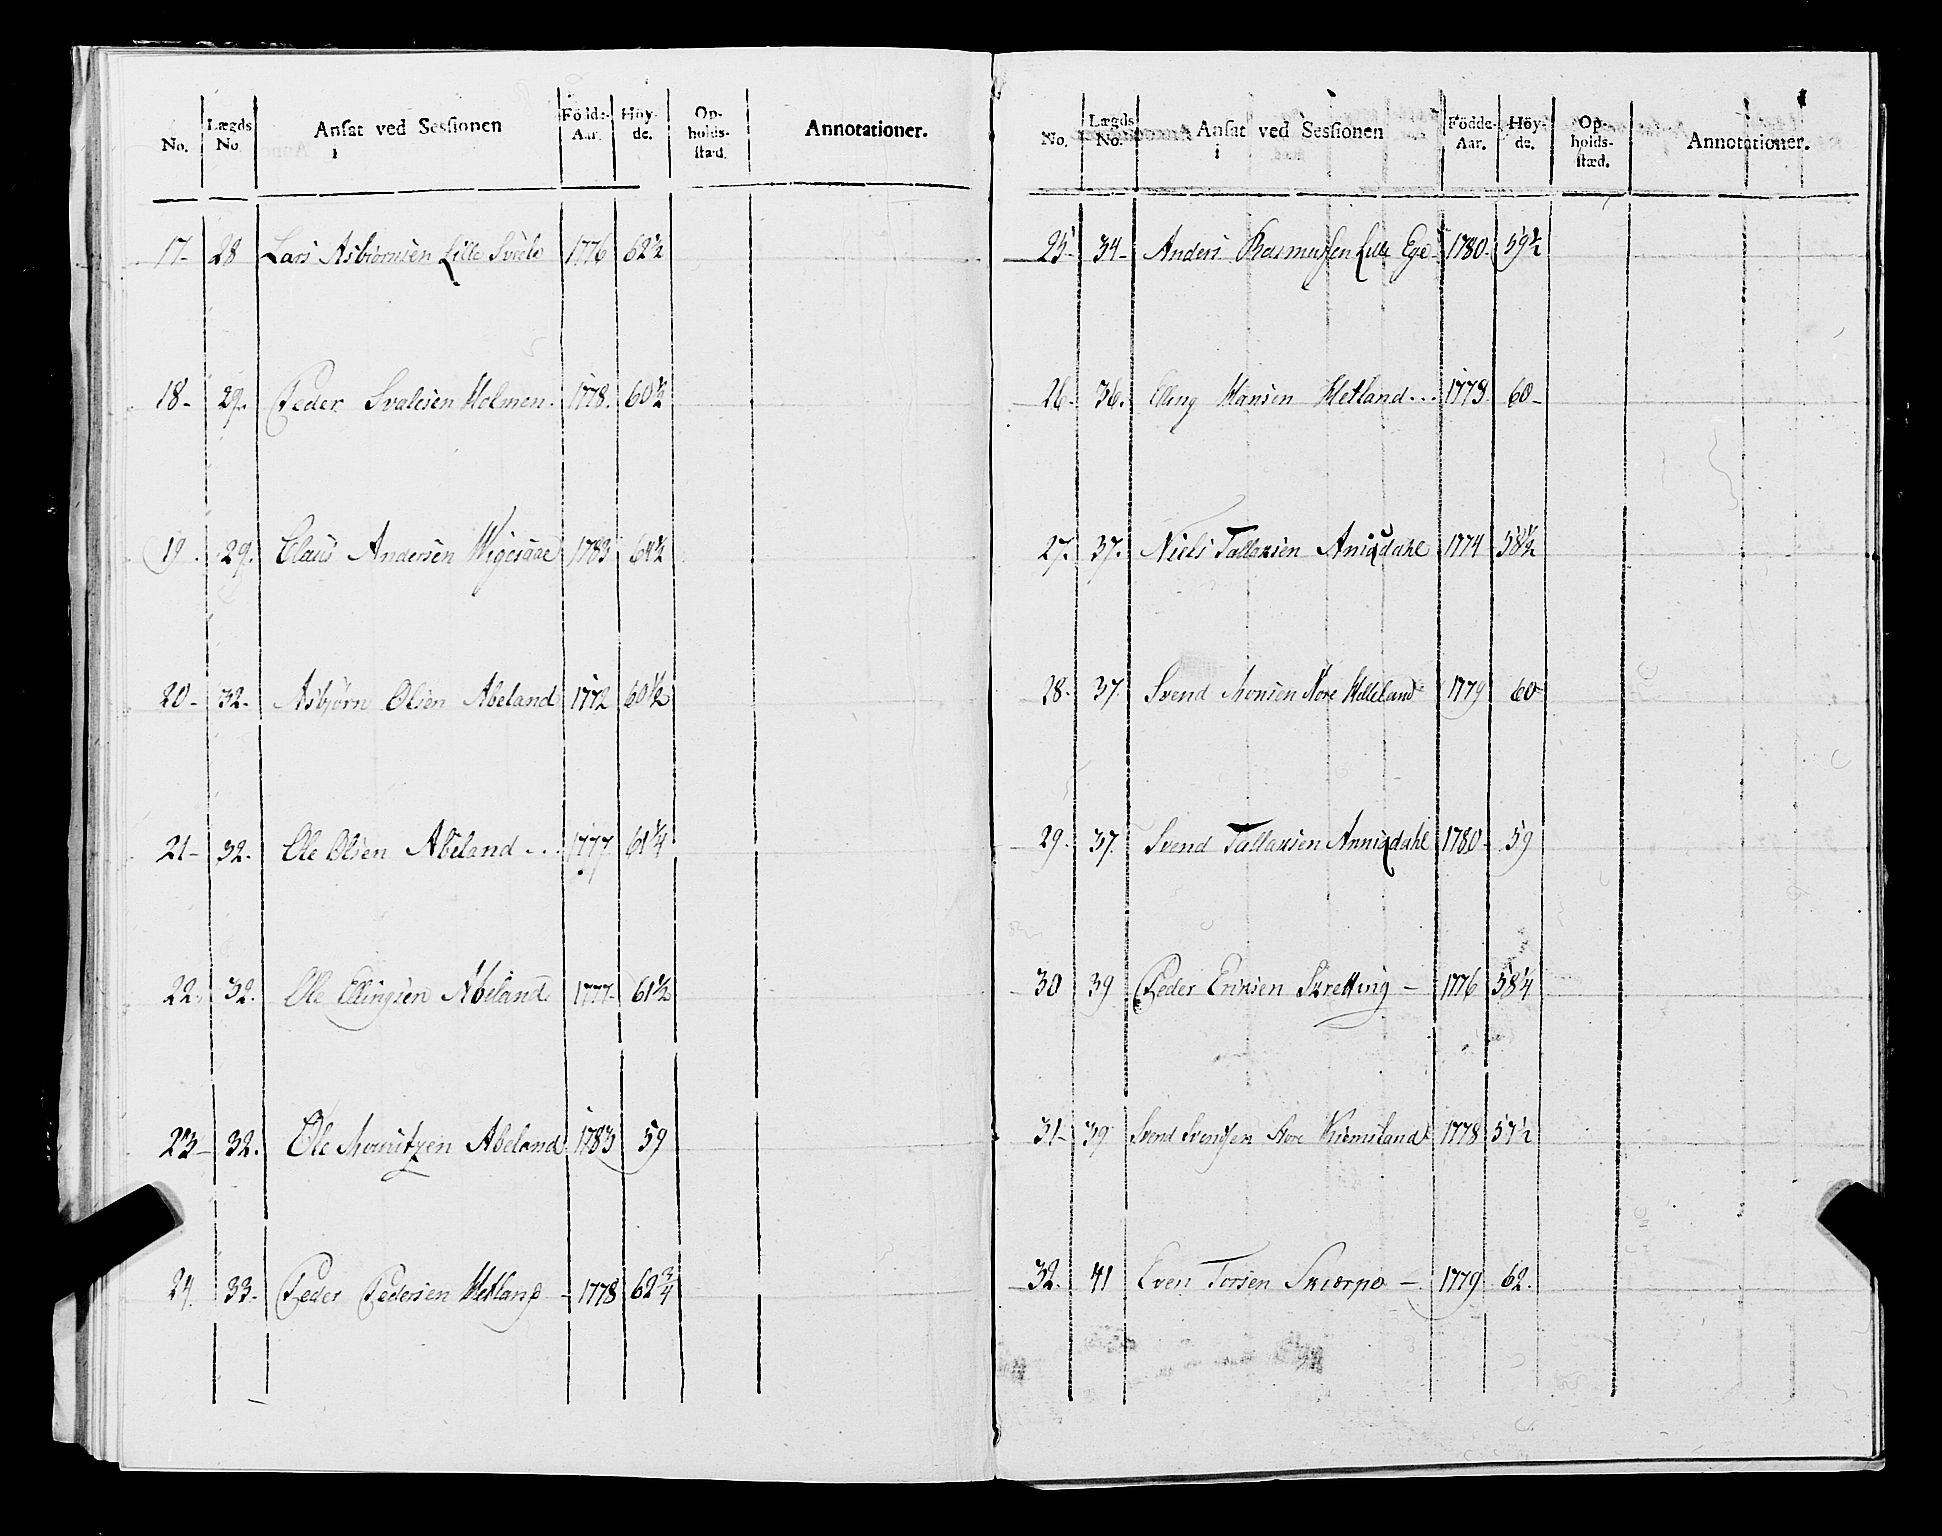 No. Lægds No. Ansat ved Sessionen i Födde-Aar. Höy-de. Op-holds-stæd. Annotationer.
17- 28 Lars Asbiörnsen Lille Svele 1776 62½
18- 29. Peder Svalesen Holmen. 1778. 60½
19. 29. Claus Andersen 1783 64½
20- 32. Asbjörn Olsen Abeland 1772 60½
21- 32. Ole Olsen Abeland... 1777 61¼
22. 32. Ole Ellingsen Abeland. 1777- 61½
23- 32. Ole Mouritzen Abeland 1783 59
24. 33. Peder Pedersen Hetland - 1778 62¾
No. Lægds No. Ansat ved Sessionen i Födde-Aar. Höy-de. Op-holds-stæd. Annotationer.
25- 34- Anders Rasmussen Lille Ege 1780- 59½
26- 36. Elling Hansen Hetland... 1773 60-
27. 37. Niels Tallaksen Aniqdahl 1774 58½
28- 37. Svend Monsen Store Halleland 1779 60-
29. 37. Svend Tallaksen Anniqdahl 1780- 59
30 39 Peder Eriksen Skretting - 1776 58¼
31- 39 Svend Svensen Store 1778 57½
32. 41 Even Torsen Skiærpe - 1779 62.